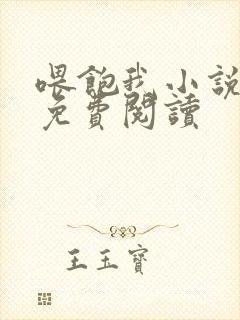 喂飽我小説
免費閱讀
王玉寶